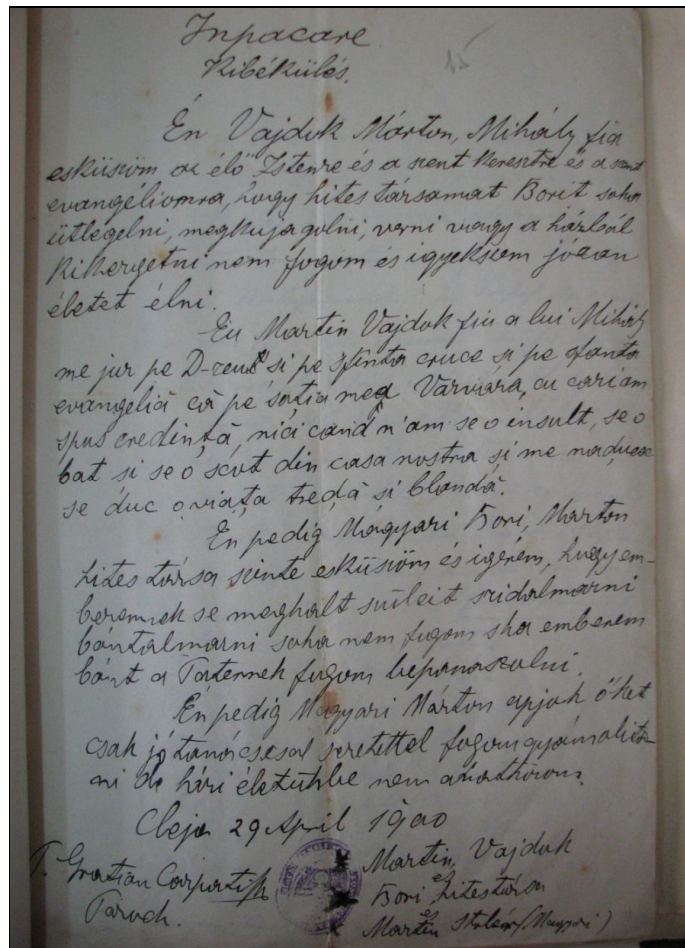 Inpacare
Kibékülés.
15
Én Vajduk Márton, Mihály fia
esküszöm az élő Istenre és a szent keresztre és a szent
evangéliomra, hogy hites társamat Borit soha
ütlegelni, megkujagolni, verni vagy a házból
kikergetni nem fogom és igyekszem józan
életet élni.
Eu Martin Vajduk fiu a lui Mihály
me jur pe D-zeul si pe sfânta cruce si pe sfanta
evangeliă că pe soţia mea Varvára, cu cari am
spus credinţă, nici cand n'am se o insult, se o
bat si se o scot din casa nostra si me
se duc o viaţa tredă si blandă.
Én pedig Magyari Bori, Marton
hites társa szinte esküszöm és igérem, hogy em-
beremnek se meghalt szüleit szidalmazni
bántalmazni soha nem fogom s ha emberem
bánt a Paternek fogom bepanaszolni.
Én pedig Magyari Márton apjok őket
csak jó tanácscsal szeretettel fogom gyámolita-
ni de házi életükbe nem avatkozom.
Cleja 29 April 1900
Martin Vajduk
T. Gratian Carpati
Bori hitestársa
Paroch.
Martin (Magyari)